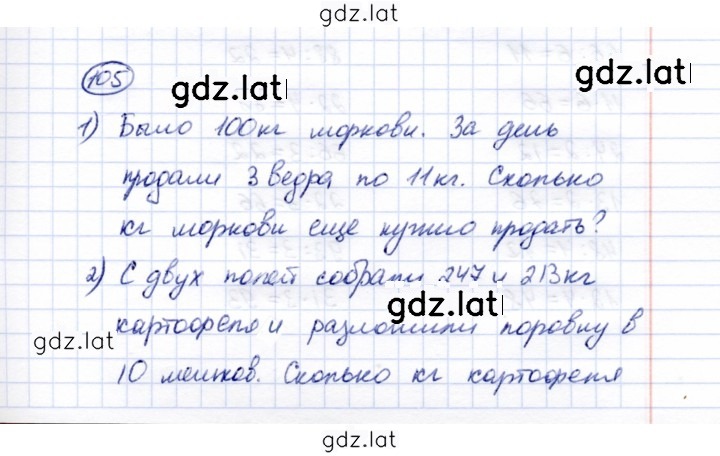 gdz.lat
105
gdz.lat
gdz.lat
1) Было 100кг моркови. За день
продали 3 ведра по 11кг. Сколько
кг моркови еще нужно продать?
2) С двух полей собрали 247 и 213кг
gdz.lat
картофеля и разложили поровну в
gdz.lat
10 мешков. Сколько кг картофеля
gdz.lat